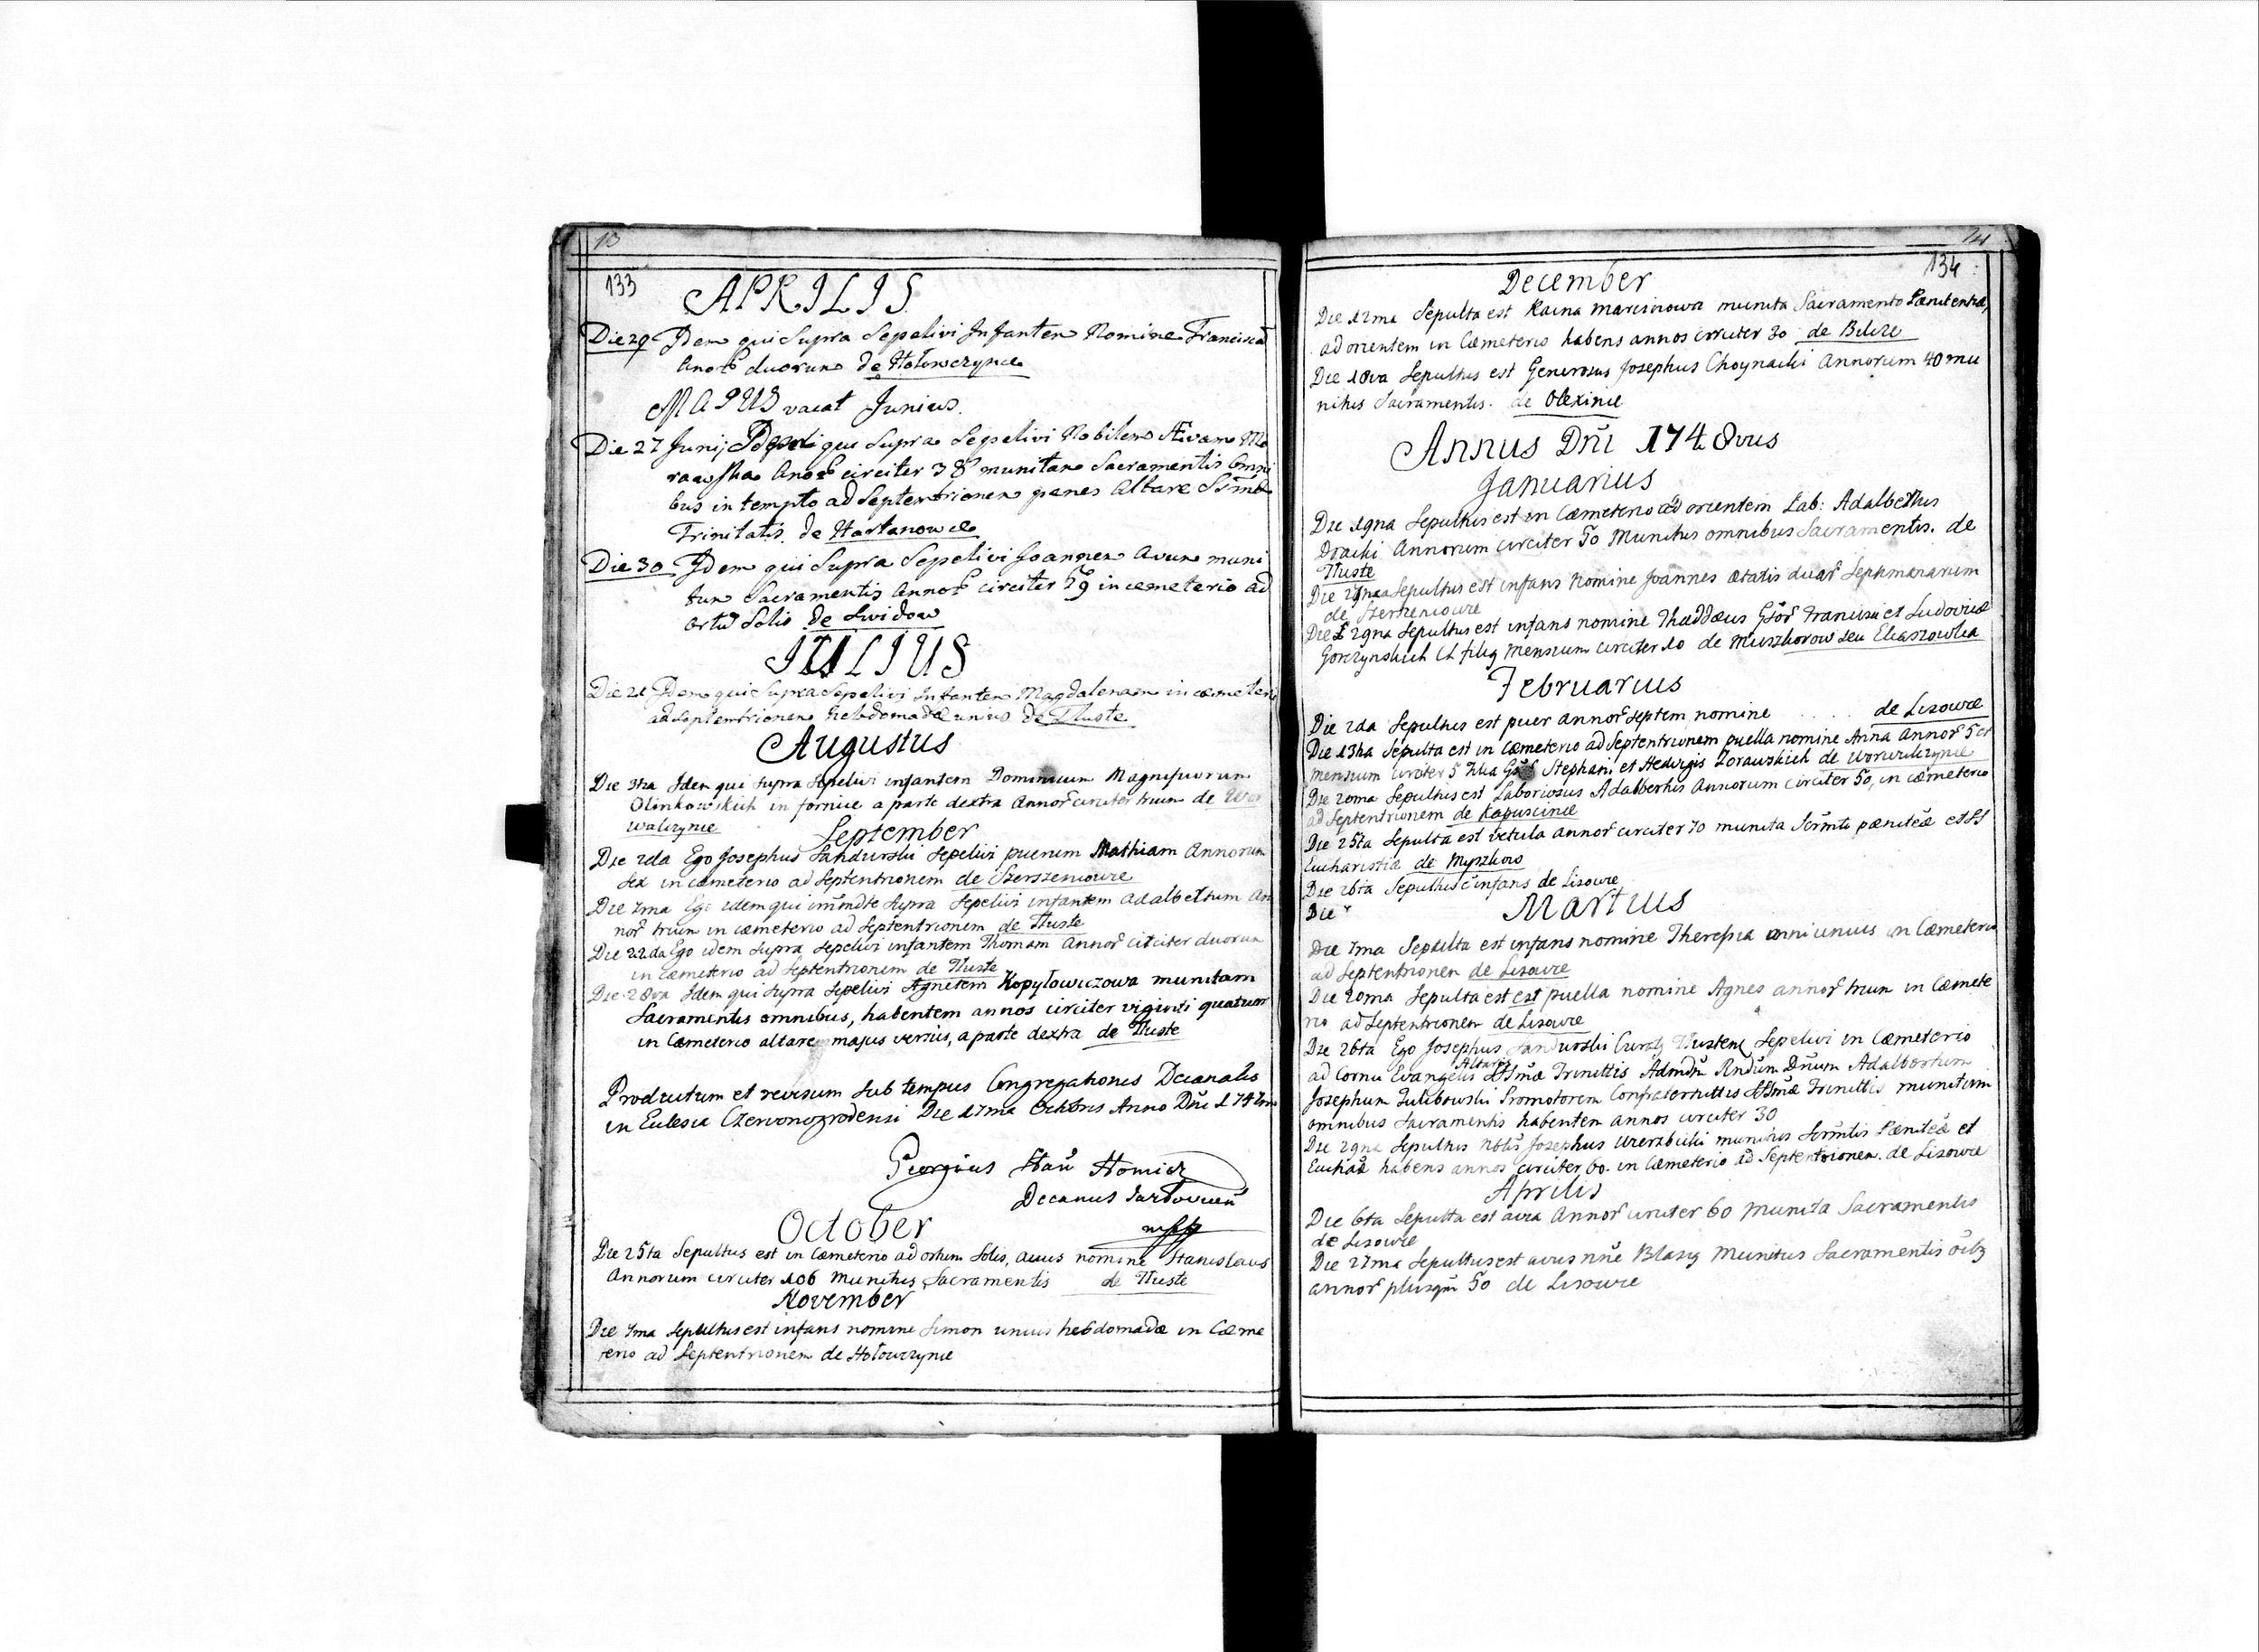 13
133
APRILIS
Die 29 Idem qui Supra Sepelivi Infantem Nomine Franciscā
Anoȓ duorum de Hołowczynce
MAIUS vacat Junius.
Die 27 Junij qui Supra Sepelivi Nobilem Ævam Mo
rawska Anoȓ circiter 38 munitam Sacramentis Omni
bus in templo ad Septentrionem penes Altare SSmæ
Trinitatis. de Hartanowce
Die 30 Idem qui Supra Sepelivi Joannem Avum muni
tum Sacramentis Annoȓ circiter 59 in cæmeterio ad
Ortū Solis de Swidow
IULIUS
Die 21 Idem qui Supra Sepelivi Infantem Magdalenam in cæmeteri
ad Septentrionem hebdomadæ unius de Tłuste
Augustus
Die 3tia Idem qui supra sepelivi infantem Dominicum Magnificorum
Olenkowskich in fornice a parte dextra Annoȓ circiter trium de Wor
walczynce
September
Die 2da Ego Josephus Sandurski Sepelivi puerum Mathiam Annorum
sex in cæmeterio ad Septentrionem de Szerszeniowce
Die 7ma Ego idem qui immdte Supra Sepelivi infantem Adalbertum An
noȓ trium in cæmeterio ad Septentrionem de Tłuste
Die 22da Ego idem supra sepelivi infantem Thomam Annoȓ citciter duorum
in cæmeterio ad Septentrionem de Tłuste
Die 28va Idem qui supra Sepelivi Agnetem Kopyłowiczowa munitam
Sacramentis omnibus, habentem annos circiter viginti quatuor
in Cæmeterio altare majus versus, a parte dextra de Tłuste
Productum et revisum sub tempus Congregationis Decanalis
in Ecclesia Czerwonogrodensi Die 17ma Octobris Anno Dni 1747mo
Georgius Stan
Decanus
mpp
October
Die 25ta Sepultus est in Cæmeterio ad ortum Solis, avus nomine Stanislaus
Annorum circiter 106 Munitus Sacramentis de Tłuste
November
Die 7ma Sepultus est infans nomine Simon unius hebdomadæ in Cæme
terio ad Septentrionem de Hołowczynce
14
134
December
Die 12ma Sepulta est Raina Marcinowa munita Sacramento Pænitentiæ,
ad orientem in Cæmeterio habens annos circiter 30 de Bilcze
Die 18va Sepultus est Generosus Josephus Choynacki Annorum 40 mu
nitus Sacramentis. de Olexince
Annus Dni 1748vus
Januarius
Die 19na Sepultus est in Cæmeterio ad orientem Lab: Adalbertus
Annorum circiter 50 Munitus omnibus Sacramentis. de
Tłuste
Die Sepultus est infans Nomine Joannes ætatis duaȓ Septimanarum
de
Die 29na Sepultus est infans nomine Thaddæus Francisci et Ludovicæ
Gorczynskich Mensium circiter 10 de Muszkorow seu Eliaszowka
Februarius
Die 2da Sepultus est puer annoȓ septem nomine . . . . . de Lisowce
Die 13tia Sepulta est in Cæmeterio ad Septentrionem puella nomine Anna Annoȓ 5 et
mensium circiter 5 filia Stephani et Hedvigis Zorawskich de Worwulczynce
Die 20ma Sepultus est Laboriosus Adalbertus Annorum circiter 50, in cæmeterio
ad Septentrionem de Kapuscince
Die 25ta Sepulta est vetula annoȓ circiter 70 munita Scrmto pænitēæ et SS
Eucharistiæ de Myszkow
Die 26ta Sepultus ē infans de Lisowce
Die
Martius
Die 7ma Sepulta est infans nomine Theresia anni unius in Cæmeterio
ad Septentrionem de Lisowce
Die 20ma Sepulta est est puella nomine Agnes annoȓ trium in Cæmete
rio ad Septentrionem de Lisowce
Die 26ta Ego Josephus Sandurski Sepelivi in Cæmeterio
Altaris
ad Cornu Evangelii SSmæ Trinittis Admdm Rndum Dnum Adalbertum
Josephum Promotorem Confraternittis SSmæ Trinittis munitum
omnibus Sacramentis habentem annos circiter 30
Die 29na Sepultus Nblis Josephus Wierzbicki munitus Scrmtis Pænitēæ et
Euchæ habens annos circiter 60. in Cæmeterio ad Septentrionem. de Lisowce
Aprilis
Die 6ta Sepulta est avia Annoȓ circiter 60 Munita Sacramentis
de Lisowce
Die 27ma Sepultus est avus nne Blasig Munitus Sacramentis oibz
annoȓ plusqm 50 de Lisowce